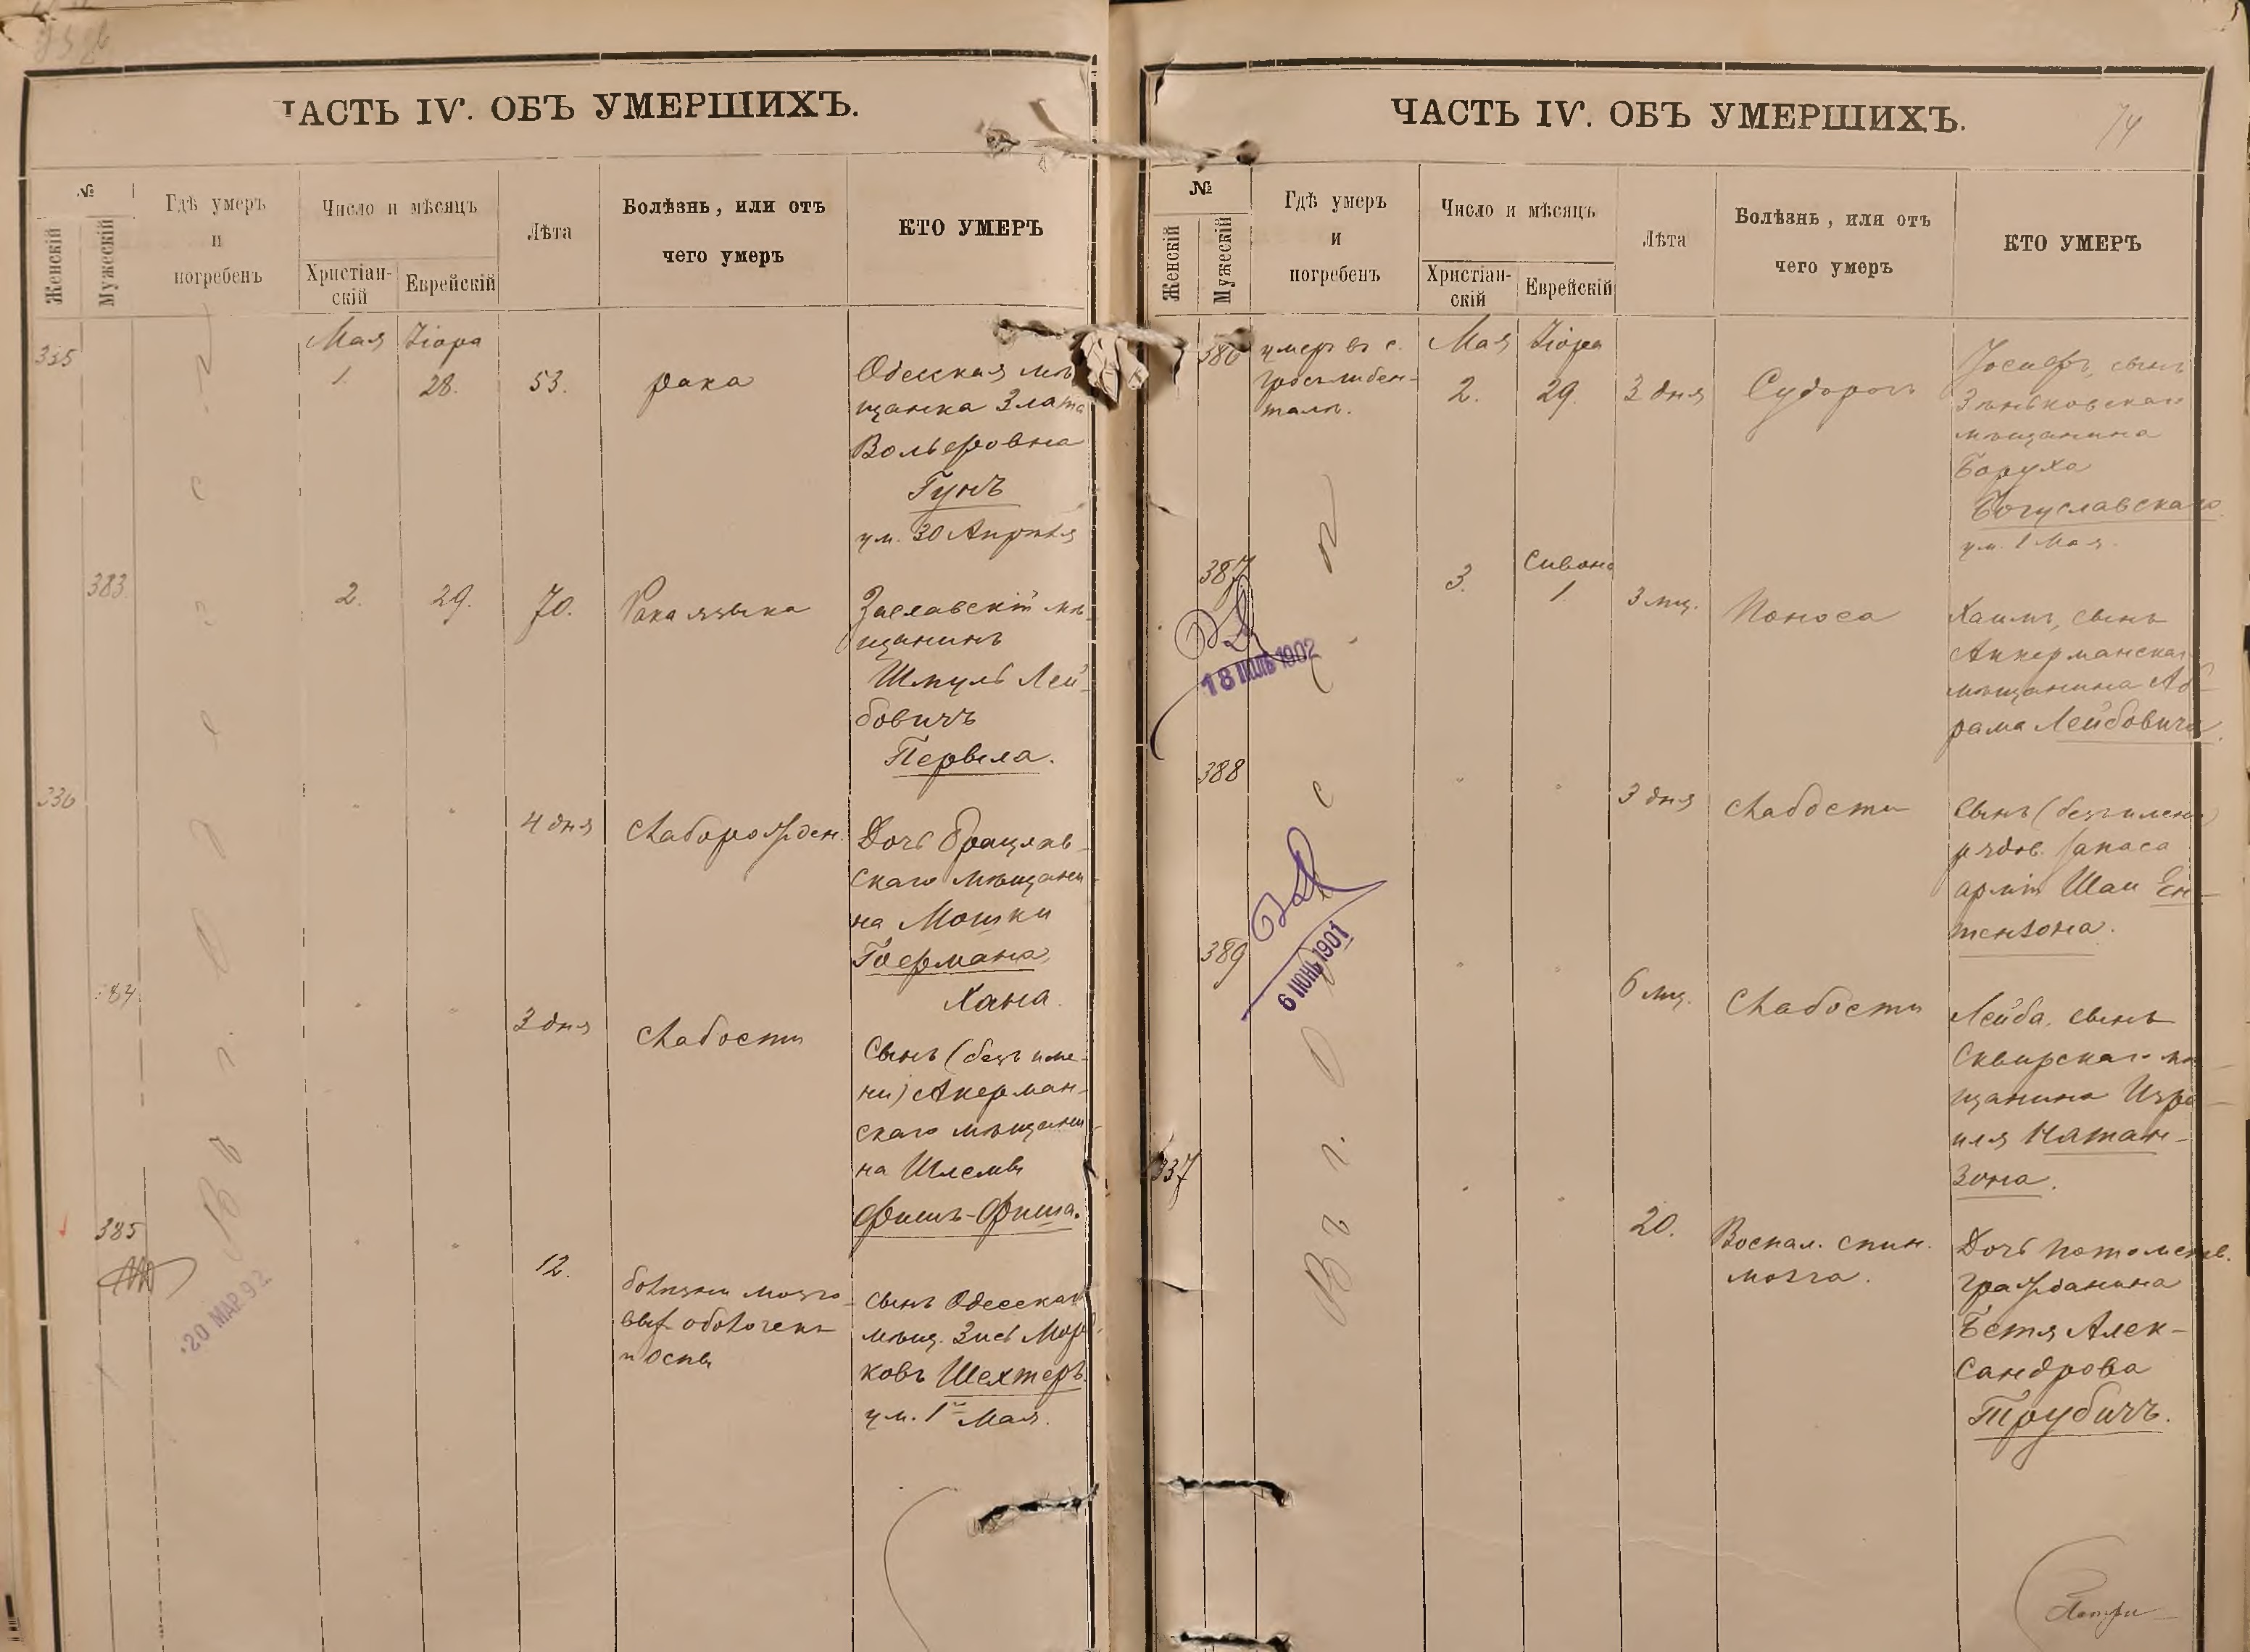 ЧАСТЬ IV. ОБЪ УМЕРШИХЪ.
№
Женскій
Мужескій
Гдѣ умеръ
и
погребенъ
Число и мѣсяцъ
Христіан-
скій
Еврейскій
Лѣта
Болѣзнь, или отъ
чего умеръ
КТО УМЕРЪ
335
Мая
1.
Ііора
28.
53.
рака
Одесская мѣ
щанка Злата
Вольфовна
Гунъ
ум. 30 Апрѣля
383.
2.
29.
70.
Рака языка
Заславскій мѣ-
щанинъ
Шмуль Лей-
бовичъ
Первела.
336
"
"
4 дня
Слаборожден.
Дочь Брацлав-
скаго мѣщани
на Мошки
Гоермана,
Хана.
384
"
"
3 дня
Слабости
Сынъ (безъ име-
ни) Акерман-
скаго мѣщани-
на Шлемы
Фишъ-Фиша.
385
"
"
12.
болѣзни мозго-
выхъ оболочекъ
и оспы
Сынъ Одесскаго
мѣщ. Зись Морд-
ковъ Шехтеръ.
ум. 1го Мая.
20 МАР.92
Въ г. Одессѣ
ЧАСТЬ IV. ОБЪ УМЕРШИХЪ.
74
№
Женскій
Мужескій
Гдѣ умеръ
и
погребенъ
Число и мѣсяцъ
Христіан-
скій
Еврейскій
Лѣта
Болѣзнь, или отъ
чего умеръ
КТО УМЕРЪ
386
умеръ въ с.
Гросъ-либен-
таль.
Мая
2.
Ііора
29.
3 дня
Судорогъ
Іосифъ, сынъ
Зѣньковскаго
мѣщанина
Боруха
Богуславскаго
ум. 1 Мая.
387
3.
Сивана
1.
3 мѣс.
Поноса
Хаимъ, сынъ
Аккерманскаго
мѣщанина Аб-
рама Лейбовича.
18 ІЮЛЬ 1902
388
"
"
3 дня
Слабости
Сынъ (безъ имени)
рядов. запаса
арміи Шаи Ен-
тензона.
6 ІЮНЬ 1901
389
"
"
6 мѣс.
Слабости
Лейба, сынъ
Сквирскаго мѣ-
щанина Изра-
иля Натан-
зона.
337
"
"
20.
Воспал. спин.
мозга.
Дочь потомств.
гражданина
Бетя Алек-
сандрова
Трубичъ.
Въ г. Одессѣ